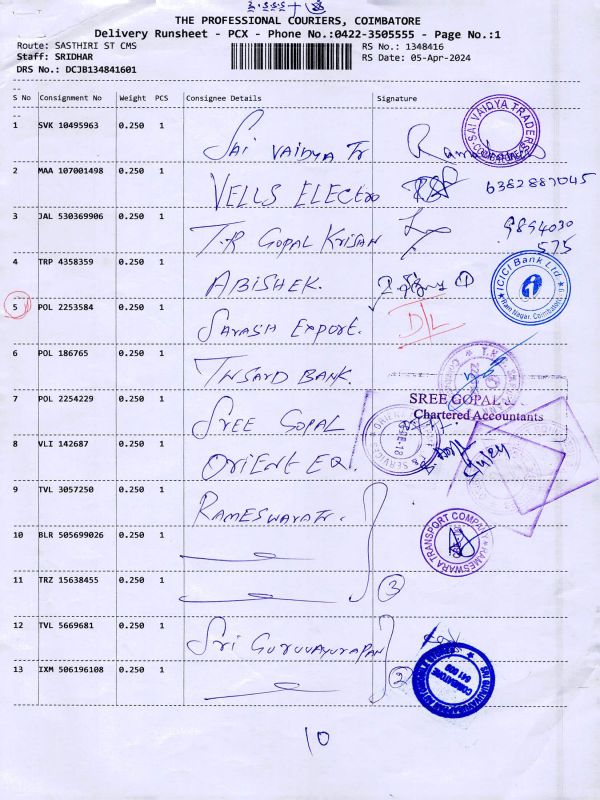 THE PROFESSIONAL COURIERS, COIMBATORE
Delivery Runsheet - PCX - Phone No.:0422-3505555 - Page No.:1
Route: SASTHIRI ST CMS RS No.: 1348416
Staff: SRIDHAR RS Date: 05-Apr-2024
DRS No.: DCJB134841601
S No Consignment No Weight PCS Consignee Details Signature
1 SVK 10495963 0.250 1 SAI VAIDYA Tr
SAI VAIDYA TRADERS
2 MAA 107001498 0.250 1 VELLS ELECTRO 6382887045
3 JAL 530369906 0.250 1 T.R GOPAL KRISAN 9894030
575
4 TRP 4358359 0.250 1 ABISHEK.
ICICI Bank Ltd.
Ram Nagar, Coimbatore
5 POL 2253584 0.250 1 SARASH EXPORT. D/L
6 POL 186765 0.250 1 TNSARD BANK.
7 POL 2254229 0.250 1 SREE GOPAL
SREE GOPAL &
Chartered Accountants
8 VLI 142687 0.250 1 ORIENT EQ.
9 TVL 3057250 0.250 1 RAMESWARA Tr.
10 BLR 505699026 0.250 1
RAMESWARA TRANSPORT COMPANY
11 TRZ 15638455 0.250 1 3
12 TVL 5669681 0.250 1 Sri GURUVAYURAPAN
13 IXM 506196108 0.250 1 2
COIMBATORE
641 009
10